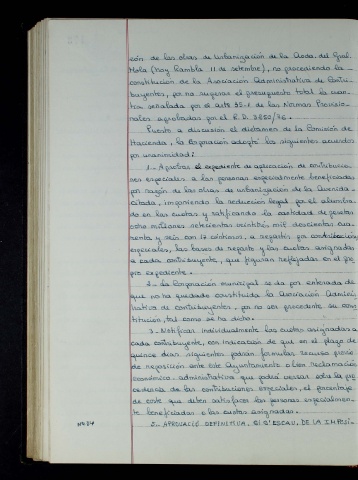 ción de las obras de urbanización de la Avda. del Gral.
Mola (hoy Rambla 11 de setembre), no procediendo la
constitución de la Asociación Administrativa de Contri-
buyentes, por no superar el presupuesto total la cuan-
tía señalada por el arto 35-1 de las Normas Provisio-
nales aprobadas por el R.D. 3250/76.
Puesto a discusión el dictamen de la Comisión de
Hacienda, la Corporación adoptó los siguientes acuerdos
por unanimidad:
1.- Aprobar el expediente de aplicación de contribucio-
nes especiales a las personas especialmente beneficiadas
por razón de las obras de urbanización de la Avenida
citada, imponiendo la reducción legal por el alumbra-
do en las cuotas y ratificando la cantidad de pesetas
ocho millones setecientas veintitrés mil doscientas cua-
renta y seis con céntimos, a repartir por contribuciones
especiales, las bases de reparto y las cuotas asignadas
a cada contribuyente, que figuran reflejadas en el pro-
pio expediente.
2.- La Corporación municipal se da por enterada de
que no ha quedado constituida la Asociación Adminis-
trativa de contribuyentes, por no ser procedente su cons-
titución, tal como se ha dicho.
3.- Notificar individualmente las cuotas asignadas a
cada contribuyente, con indicación de que en el plazo de
quince días siguientes podrán formular recurso previo
de reposición ante este Ayuntamiento o bien reclamación
económico-administrativa que podrá versar sobre la pro-
cedencia de las contribuciones especiales, el porcentaje
de coste que deben satisfacer las personas especialmen-
te beneficiadas o las cuotas asignadas.
5.- APROVACIÓ DEFINITIVA, SI S'ESCAU, DE LA IMPOSI-